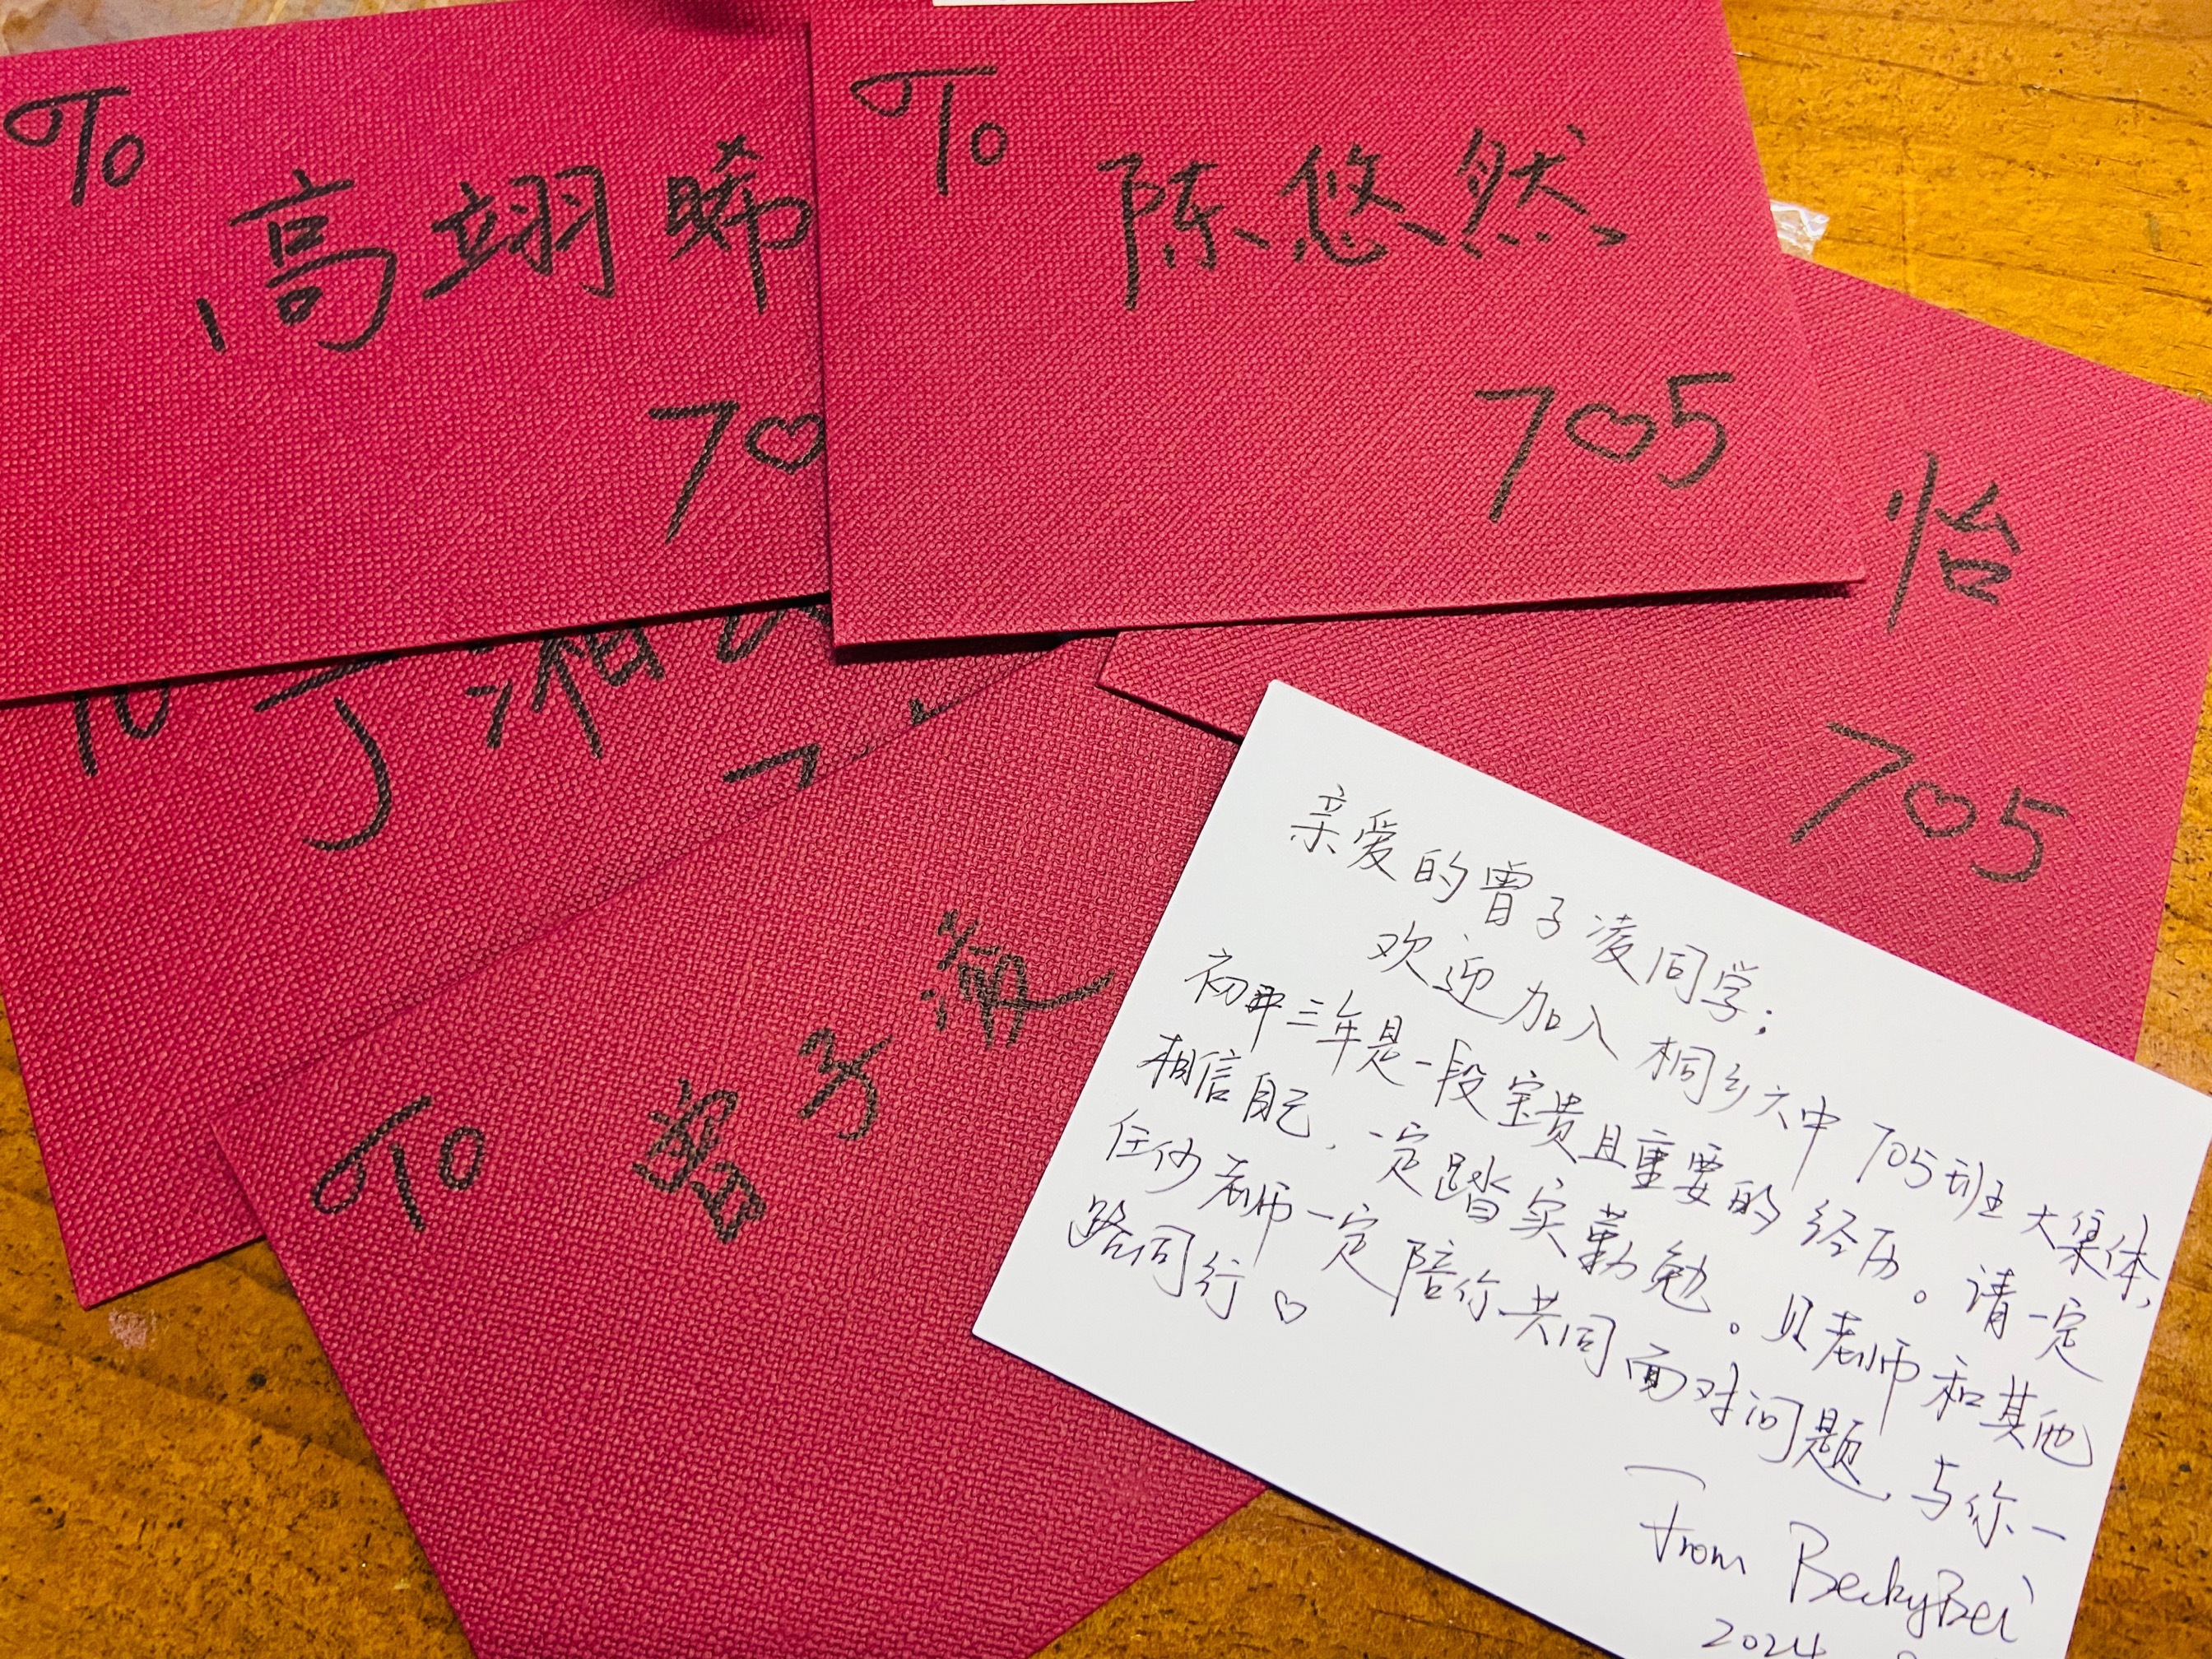 To
高翊晞
70
To
陈悠然
705
怡
705
To
丁湘
7
To
子
亲爱的曾子凌同学:
欢迎加入桐乡六中705班大集体,
初中三年是一段宝贵且重要的经历。请一定
相信自己,一定踏实勤勉。贝老师和其他
任何老师一定陪你共同面对问题,与你一
路同行♡
From BeckyBei
2024